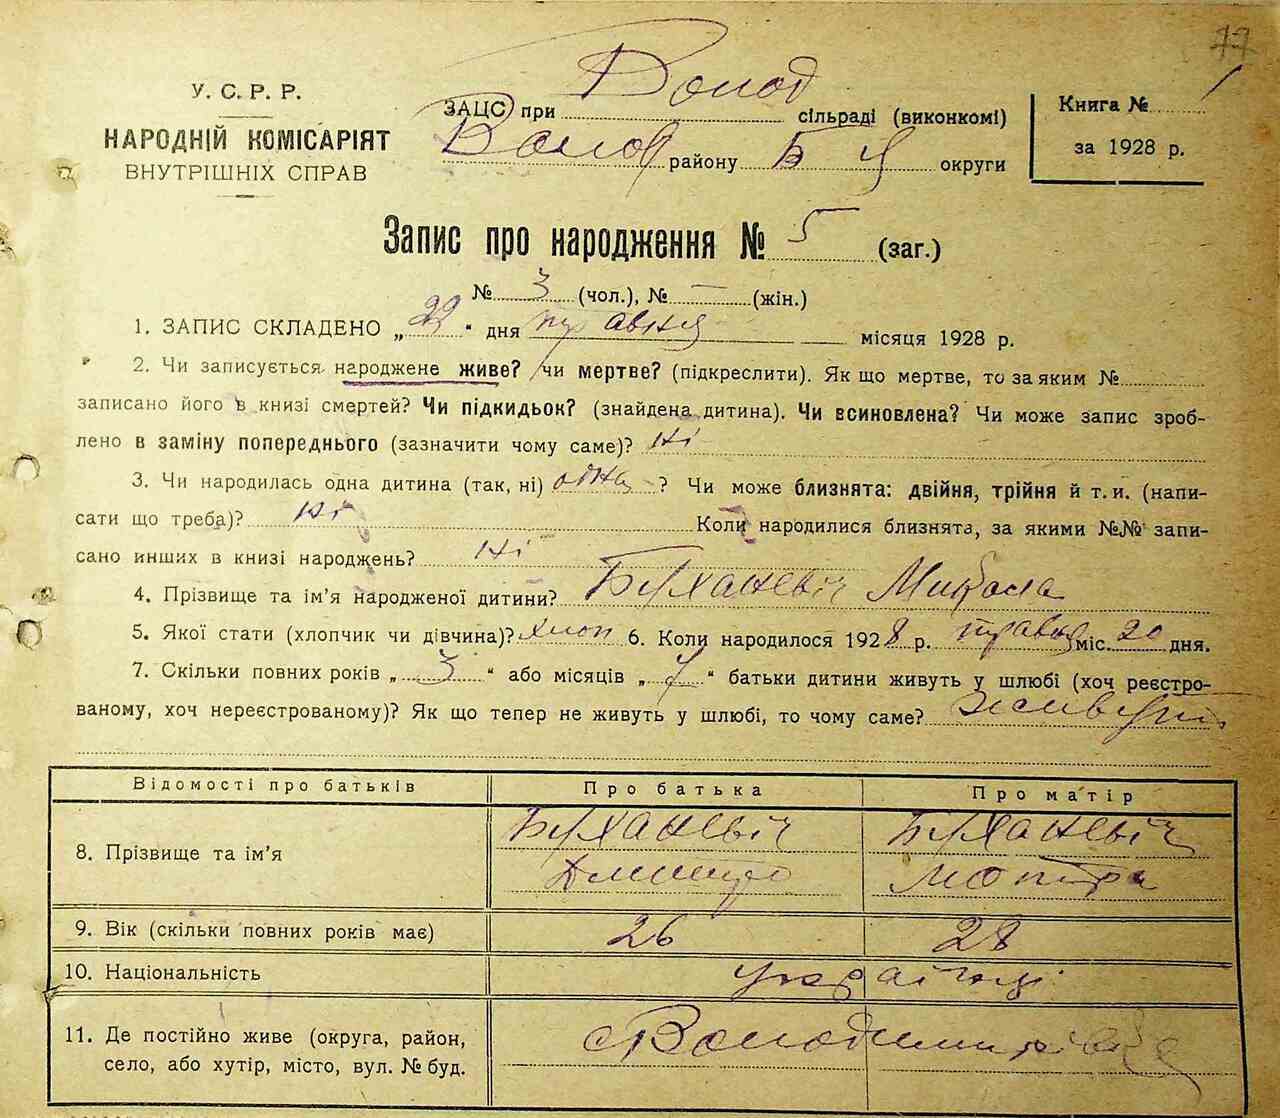 77
У. С. Р. Р.
НАРОДНІЙ КОМІСАРІЯТ
ВНУТРІШНІХ СПРАВ
ЗАЦС при Волод сільраді (виконкомі)
Волод району Б Ц округи
Книга № 1
за 1928 р.
Запис про народження № 5 (заг.)
№ 3 (чол.), № — (жін.)
1. ЗАПИС СКЛАДЕНО „22“ дня травня місяця 1928 р.
2. Чи записується народжене живе? чи мертве? (підкреслити). Як що мертве, то за яким №
записано його в книзі смертей? Чи підкидьок? (знайдена дитина). Чи всиновлена? Чи може запис зроб-
лено в заміну попереднього (зазначити чому саме)? Ні
3. Чи народилась одна дитина (так, ні) одна ? Чи може близнята: двійня, трійня й т. и. (напи-
сати що треба)? Ні Коли народилися близнята, за якими №№ запи-
сано инших в книзі народжень? Ні
4. Прізвище та ім’я народженої дитини? Буханевіч Микола
5. Якої стати (хлопчик чи дівчина)? хлоп 6. Коли народилося 1928 р. травня міс. 20 дня.
7. Скільки повних років „ 3 “ або місяців „ 7 “ батьки дитини живуть у шлюбі (хоч реєстро-
ваному, хоч нереєстрованому)? Як що тепер не живуть у шлюбі, то чому саме? Живуть
Відомості про батьків Про батька Про матір
8. Прізвище та ім’я Буханевіч Дмитро Буханевіч Мотря
9. Вік (скільки повних років має) 26 28
10. Національність українці
11. Де постійно живе (округа, район,
село, або хутір, місто, вул. № буд. с Володимирівка